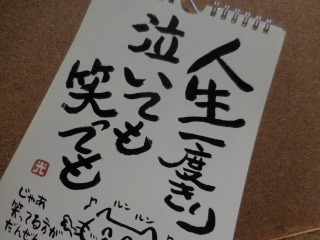 人生一度きり
泣いても
笑っても
ルンルン
じゃあ
笑ってるうが
だんぜん